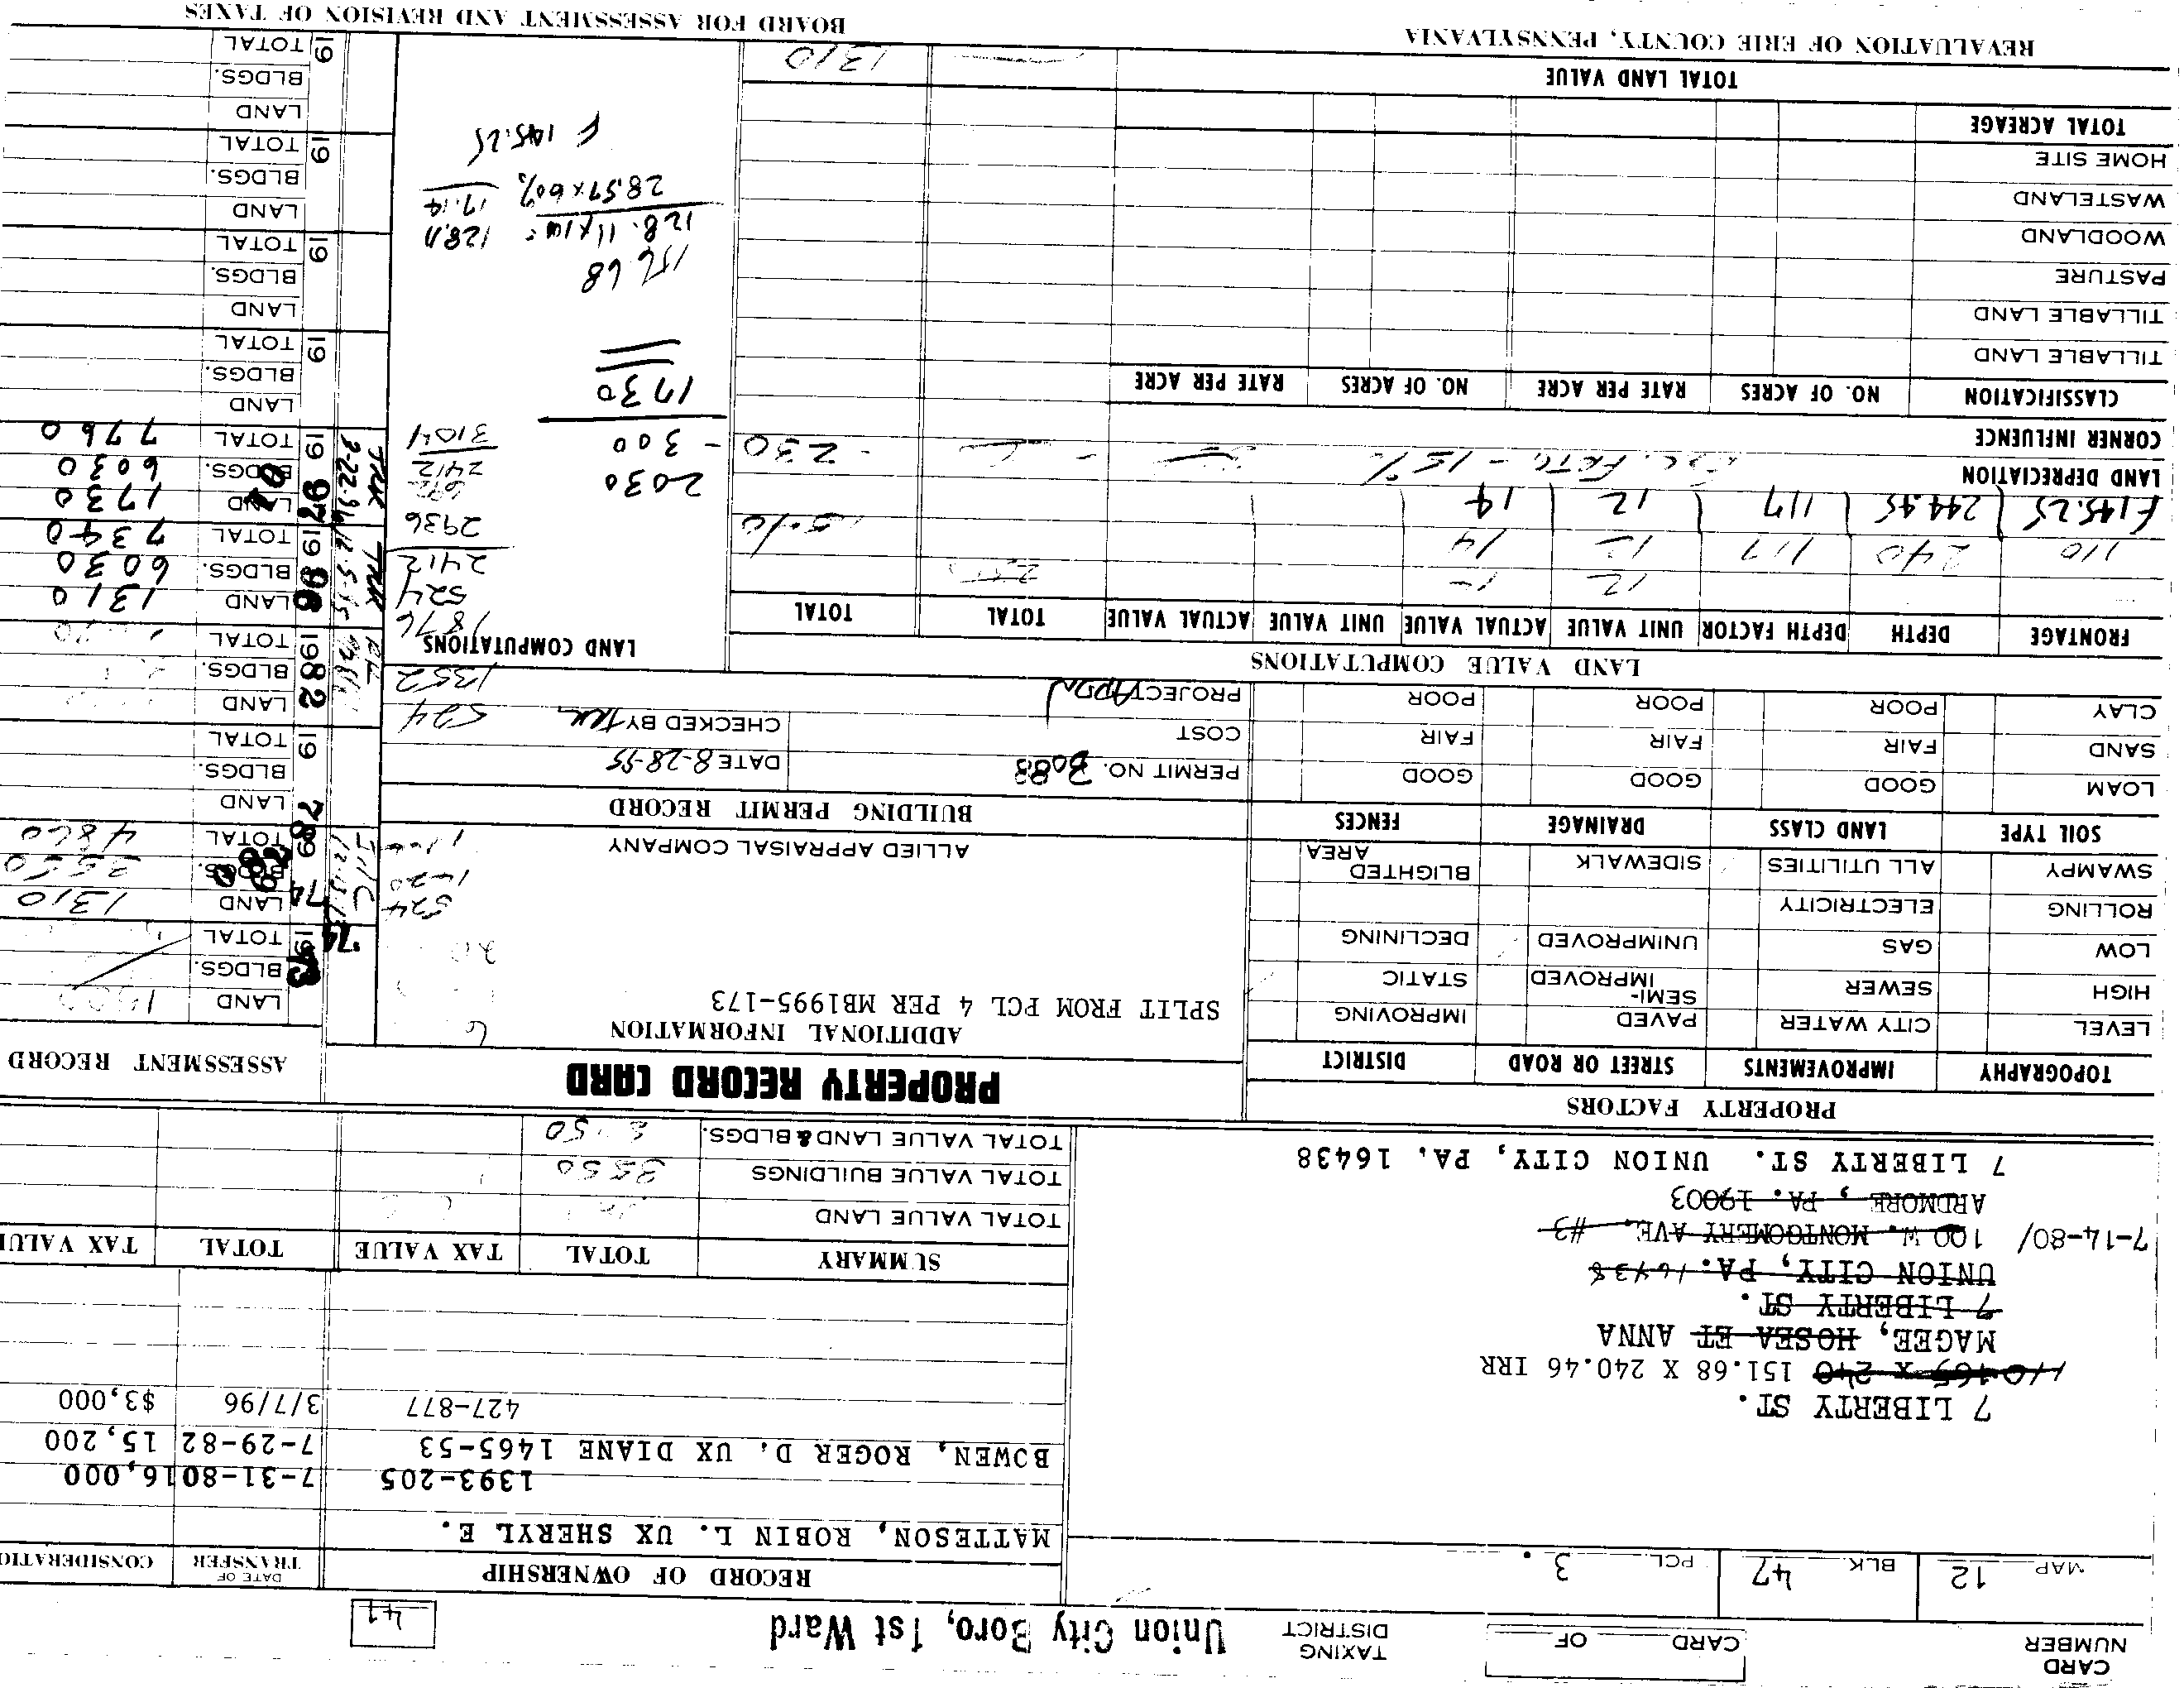 CARD NUMBER
CARD OF
TAXING DISTRICT
Union City Boro, 1st Ward
41
MAP 12 BLK. 47 PCL. 3.
RECORD OF OWNERSHIP
DATE OF TRANSFER
CONSIDERATIO
MATTESON, ROBIN L. UX SHERYL E.
1393-205 7-31-80 16,000
BOWEN, ROGER D. UX DIANE 1465-53 7-29-82 15,200
427-877 3/7/96 $3,000
7 LIBERTY ST.
110 165 X 240 151.68 X 240.46 IRR
MAGEE, HOSEA ET ANNA
7 LIBERTY ST.
UNION CITY, PA. 16438
7-14-80/ 100 W. MONTGOMERY AVE. #3
ARDMORE, PA. 19003
7 LIBERTY ST. UNION CITY, PA. 16438
SUMMARY TOTAL TAX VALUE TOTAL TAX VALU
TOTAL VALUE LAND
TOTAL VALUE BUILDINGS 3550
TOTAL VALUE LAND & BLDGS.
PROPERTY FACTORS
TOPOGRAPHY IMPROVEMENTS STREET OR ROAD DISTRICT
LEVEL CITY WATER PAVED IMPROVING
HIGH SEWER SEMI-IMPROVED STATIC
LOW GAS UNIMPROVED DECLINING
ROLLING ELECTRICITY
SWAMPY ALL UTILITIES SIDEWALK BLIGHTED AREA
SOIL TYPE LAND CLASS DRAINAGE FENCES
LOAM GOOD GOOD GOOD
SAND FAIR FAIR FAIR
CLAY POOR POOR POOR
PROPERTY RECORD CARD
ADDITIONAL INFORMATION
SPLIT FROM PCL 4 PER MB1995-173
524
ALLIED APPRAISAL COMPANY
BUILDING PERMIT RECORD
PERMIT NO. 3088 DATE 8-28-95
COST CHECKED BY
PROJECT
524
1352
ASSESSMENT RECORD
1973 LAND
BLDGS.
TOTAL
'74
74 LAND 1310
BLDGS. 3550
TOTAL 4860
78
LAND
BLDGS.
19 TOTAL
1982 LAND
BLDGS.
TOTAL
1996 LAND 1310
BLDGS. 6030
TOTAL 7340
1997 LAND 1730
BLDGS. 6030
TOTAL 7760
LAND
BLDGS.
19 TOTAL
LAND
BLDGS.
19 TOTAL
LAND
BLDGS.
19 TOTAL
LAND
BLDGS.
19 TOTAL
LAND VALUE COMPUTATIONS
FRONTAGE DEPTH DEPTH FACTOR UNIT VALUE ACTUAL VALUE UNIT VALUE ACTUAL VALUE TOTAL TOTAL
12
110 240 117 12 14
F145.25 244.45 117 12 14
LAND DEPRECIATION -15% - 230
CORNER INFLUENCE
CLASSIFICATION NO. OF ACRES RATE PER ACRE NO. OF ACRES RATE PER ACRE
TILLABLE LAND
TILLABLE LAND
PASTURE
WOODLAND
WASTELAND
HOME SITE
TOTAL ACREAGE
TOTAL LAND VALUE 1310
LAND COMPUTATIONS
1876
524
2412
2936
2412
3104
2030
- 300
1730
156.68
128.11
28.57 x 60%
128.11
17.14
F 145.25
REVALUATION OF ERIE COUNTY, PENNSYLVANIA
BOARD FOR ASSESSMENT AND REVISION OF TAXES